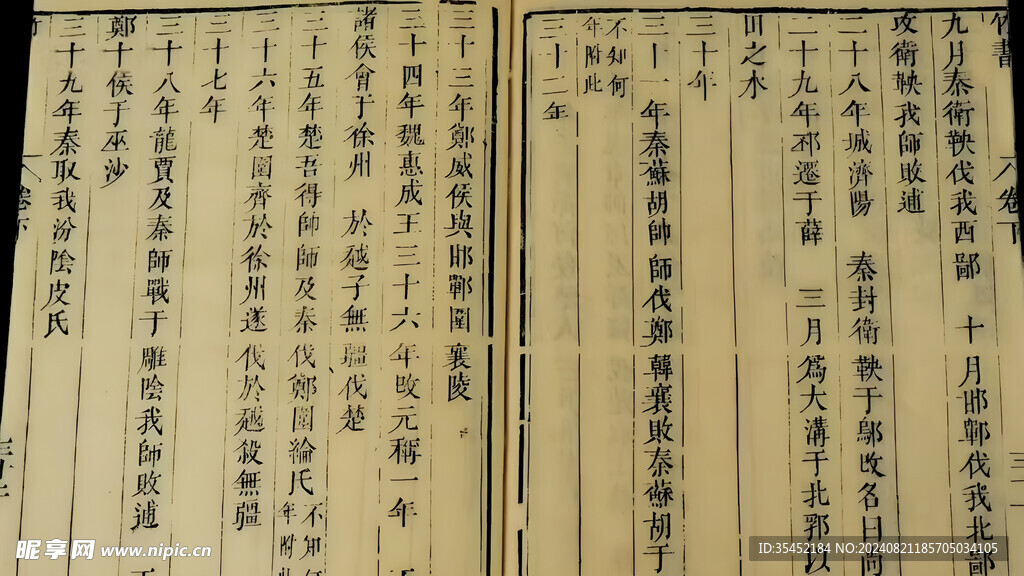 竹書
卷下
九月秦衛鞅伐我西鄙 十月邯鄲伐我北鄙
攻衛鞅我師敗逋
二十八年城濟陽 秦封衛鞅于鄔改名曰商
二十九年邳遷于薛 三月為大溝于北郛以
田之水
三十年
三十一年秦蘇胡帥師伐鄭韓襄敗秦蘇胡于
不知何
年附此
三十二年
三十三年鄭威侯與邯鄲圍襄陵
三十四年魏惠成王三十六年改元稱一年
諸侯會于徐州 於越子無疆伐楚
三十五年楚吾得帥師及秦伐鄭圍綸氏
不知何
年附此
三十六年楚圍齊於徐州遂伐於越殺無疆
三十七年
三十八年龍賈及秦師戰于雕陰我師敗逋
鄭十侯于巫沙
三十九年秦取我汾陰皮氏
卷下
昵享网 www.nipic.cn
ID:35452184 NO:20240821185705034105